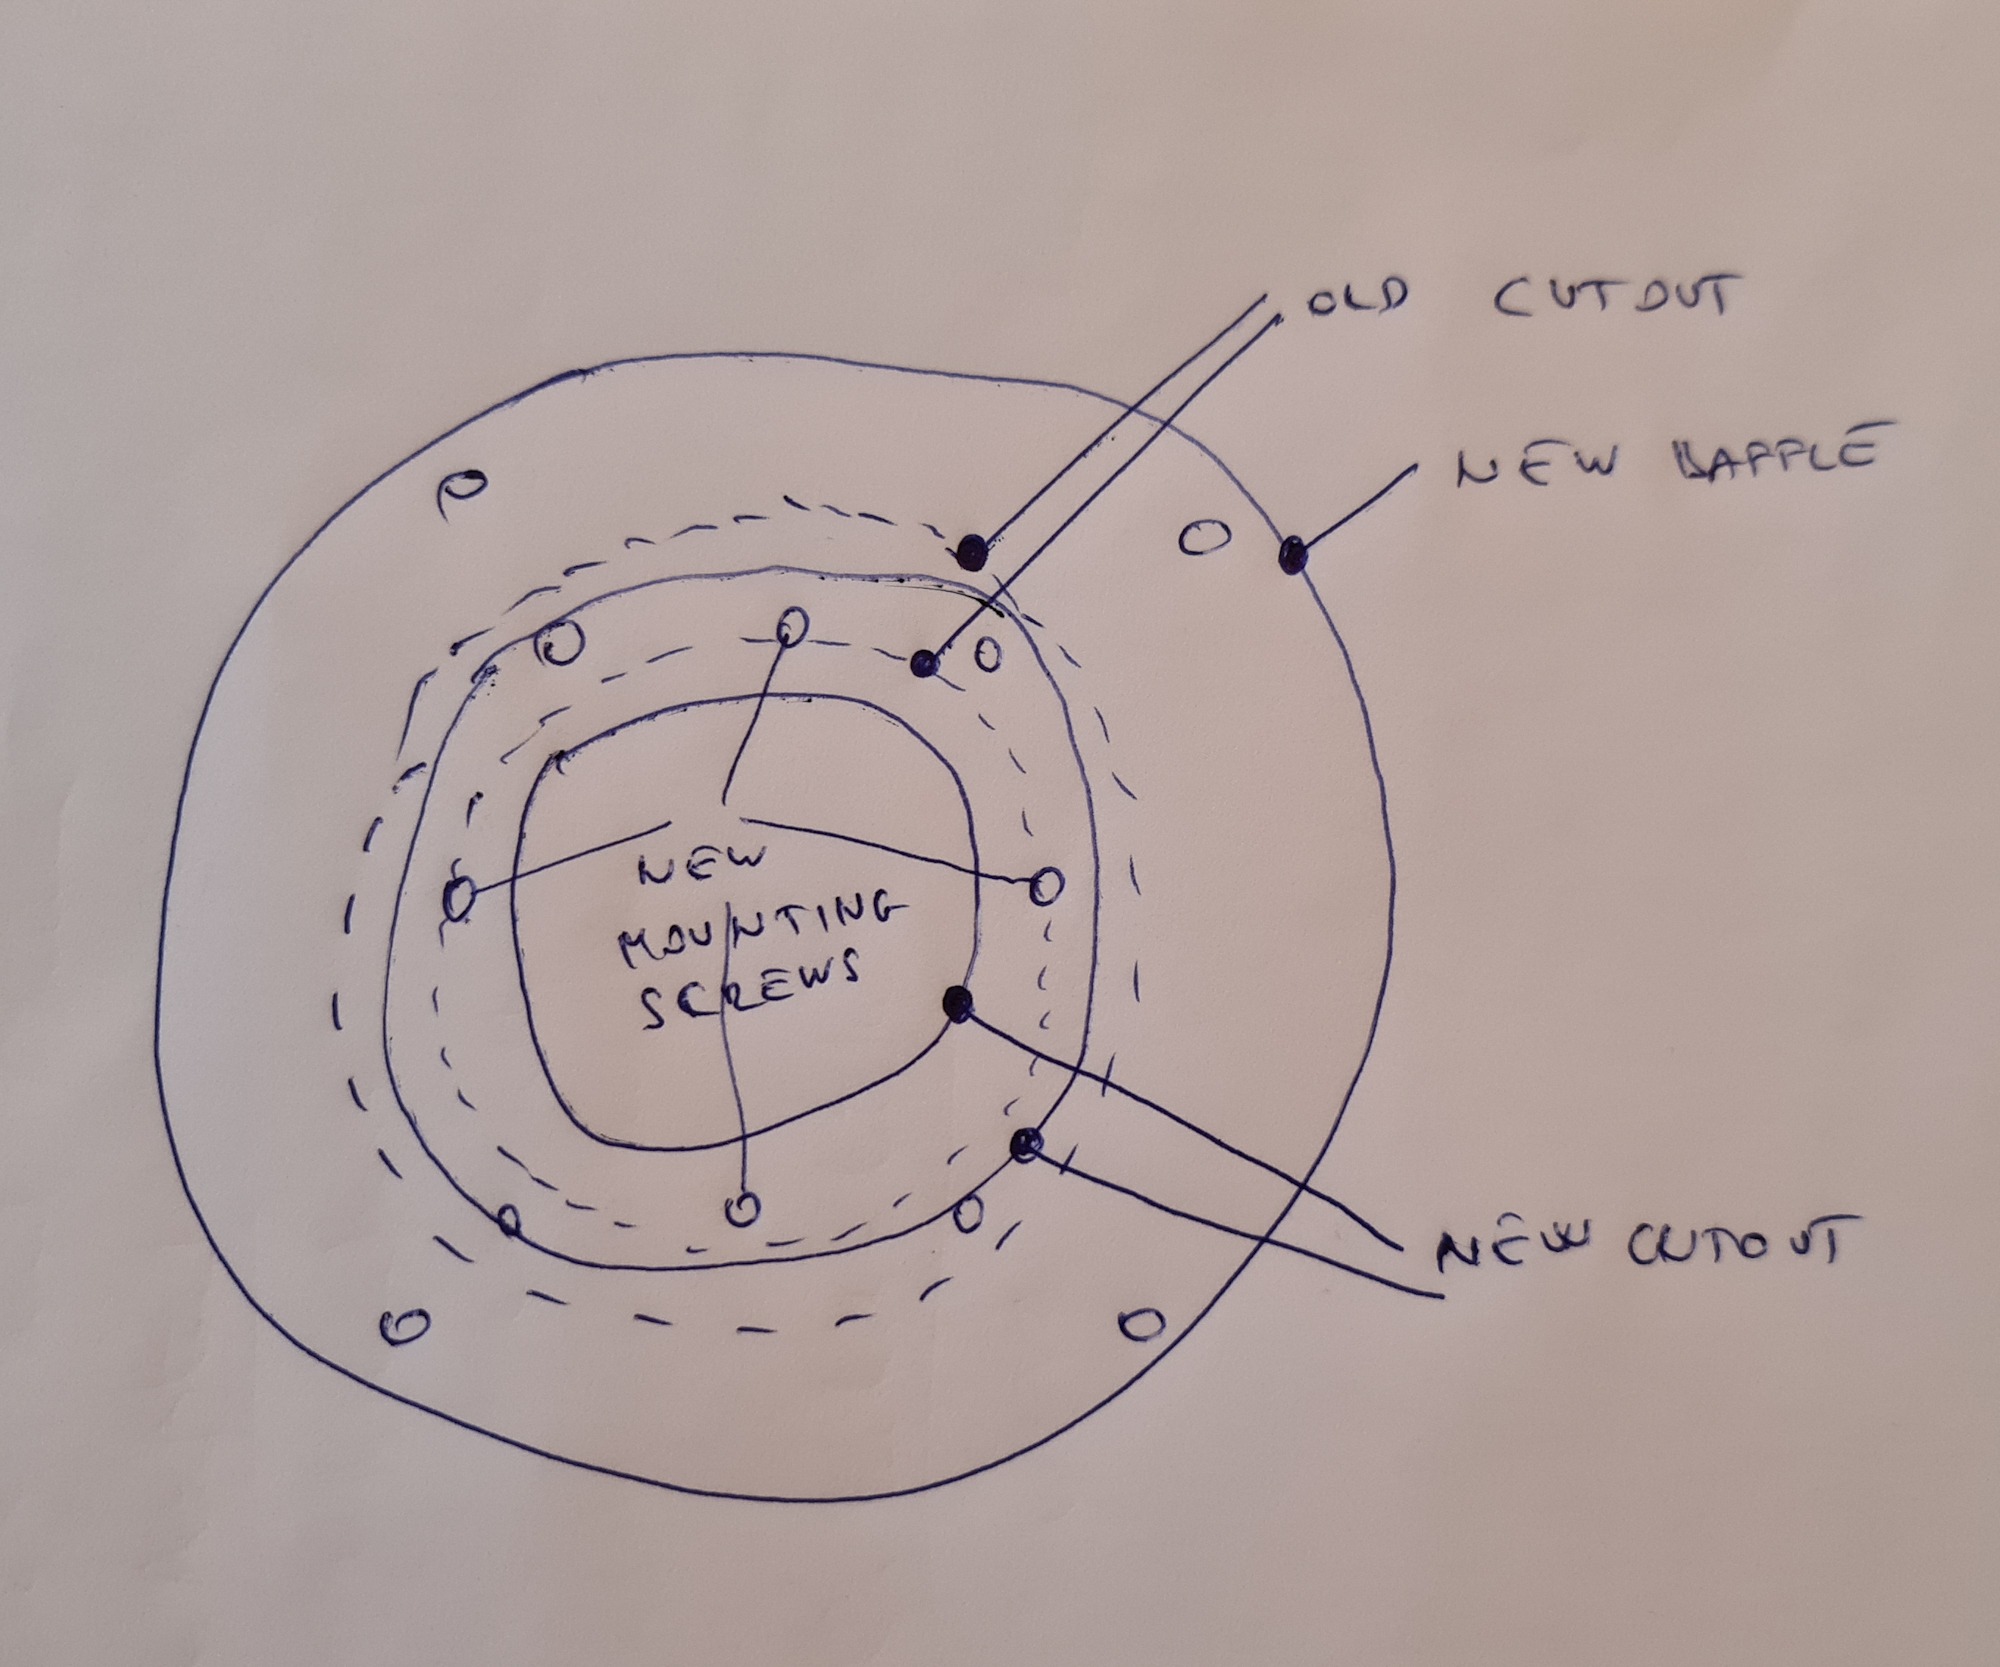 OLD CUTOUT
NEW BAFFLE
NEW
MOUNTING
SCREWS
NEW CUTOUT